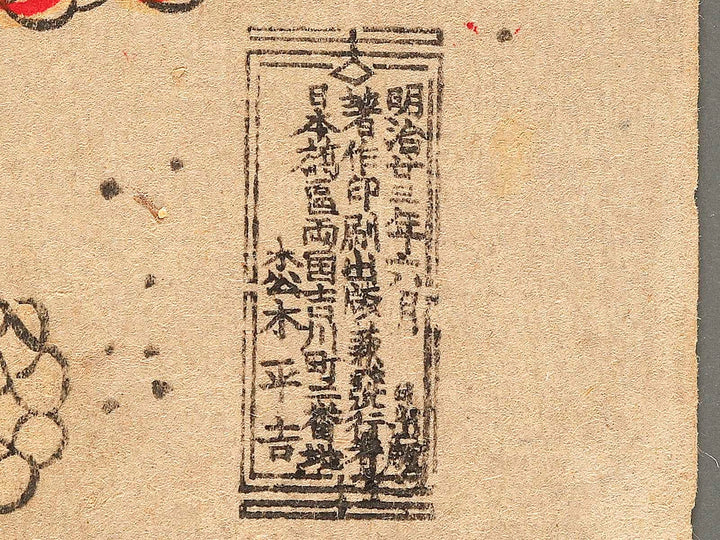 明治廿三年六月 日出版
著作印刷出版兼發行者
日本橋區両国吉川町二番地
松木平吉